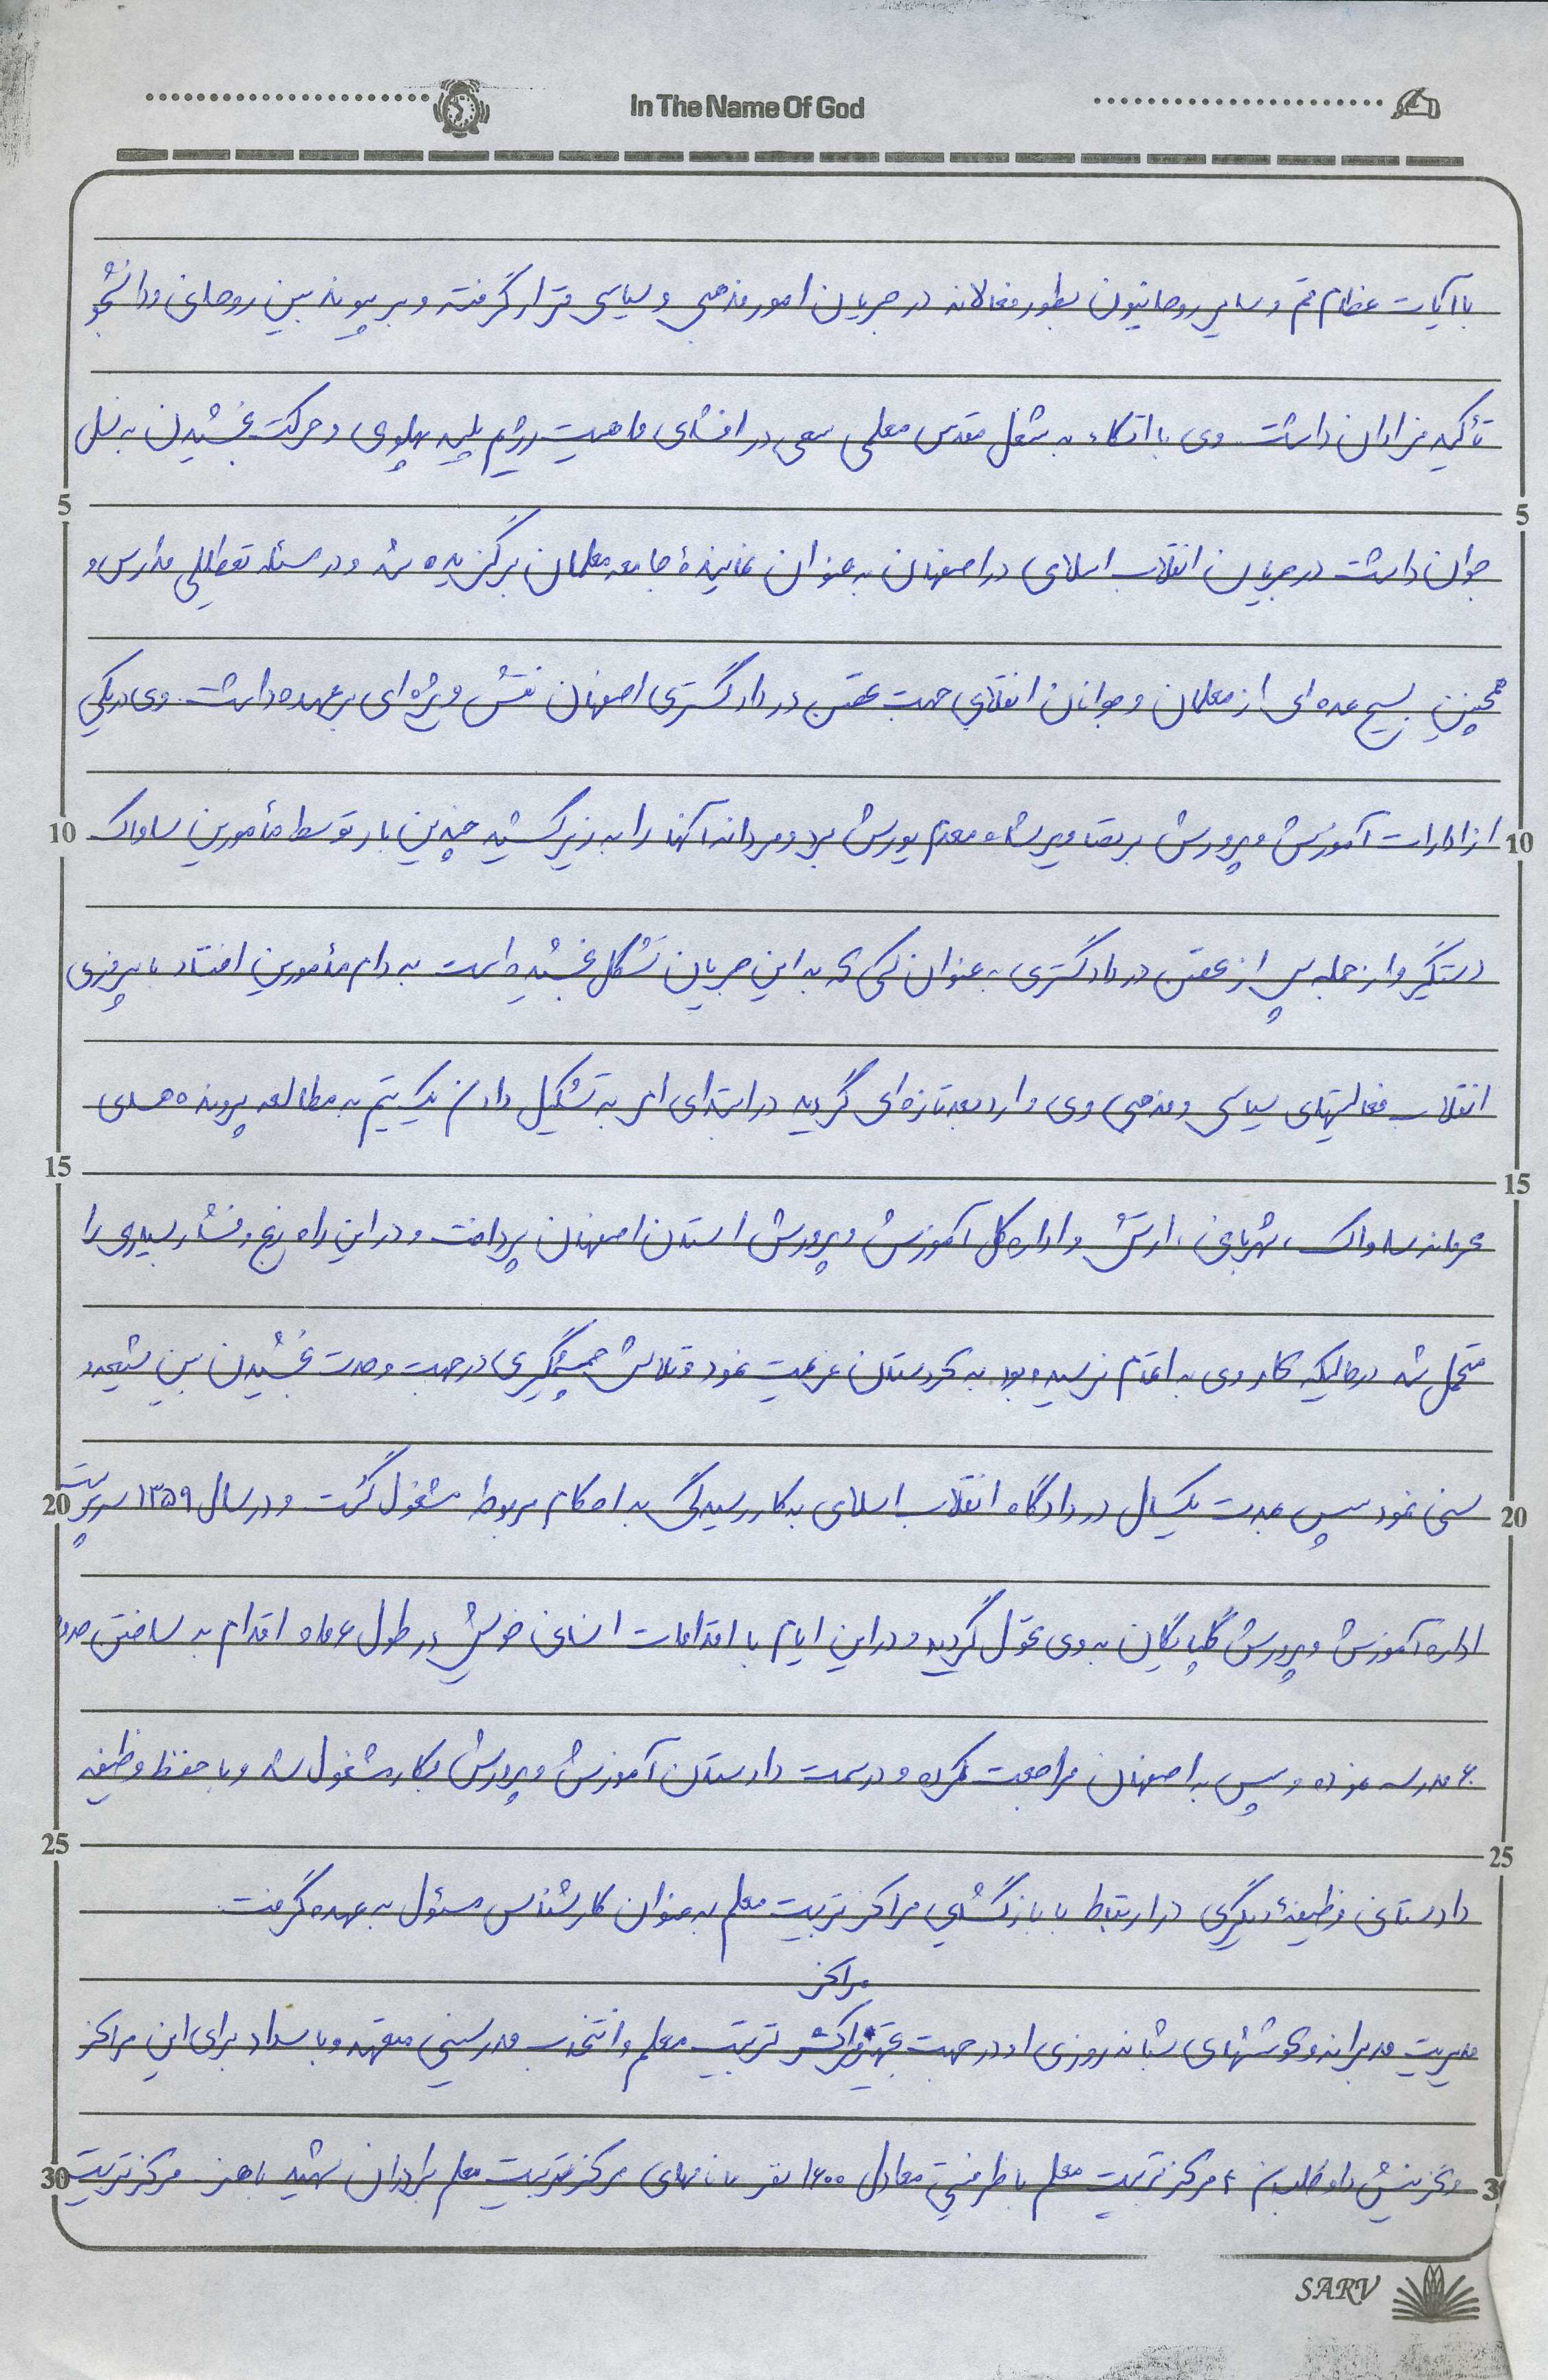 In The Name Of God
با آیات عظام قم و سایر روحانیون بطور فعالانه در جریان امور مذهبی و سیاسی قرار گرفته و بر پیوند بین روحانی و دانشجو
تأکید فراوان داشت. وی با اتکاء به شغل مقدس معلمی سعی در افشای ماهیت رژیم پلید پهلوی و حرکت بخشیدن به نسل
5 جوان داشت در جریان انقلاب اسلامی در اصفهان به عنوان نماینده جامعه معلمان برگزیده شد و در مسئله تعطیلی مدارس و 5
همچنین بسیج عده ای از معلمان و جوانان انقلابی جهت تحصن در دادگستری اصفهان نقش ویژه ای بر عهده داشت. وی در یکی
10 از ادارات آموزش و پرورش بر تصاویر شاه معدوم یورش برد و مردانه آنها را به زیر کشید چندین بار توسط مأمورین ساواک 10
دستگیر و از جمله پس از تحصن در دادگستری به عنوان کسی که به این جریان تشکل بخشیده است به دام مأمورین افتاد با پیروزی
انقلاب فعالیتهای سیاسی و مذهبی وی وارد بعد تازه ای گردید در ابتدای امر به تشکیل دادن یک تیم به مطالعه پرونده های
15 محرمانه ساواک، شهربانی، ارتش و اداره کل آموزش و پرورش استان اصفهان پرداخت و در این راه رنج و فشار بسیاری را 15
متحمل شد در حالیکه کار وی به اتمام نرسیده بود به کردستان عزیمت نمود و تلاش چشمگیری در جهت وحدت بخشیدن بین شیعه و
20 سنی نمود سپس بمدت یکسال در دادگاه انقلاب اسلامی به کار رسیدگی به احکام مربوط مشغول گشت و در سال ۱۳۵۹ سرپرستی 20
اداره آموزش و پرورش گلپایگان به وی محول گردید و در این ایام با اقدامات انسانی خویش در طول ۶ ماه اقدام به ساختن حدود
۶ مدرسه نموده و سپس به اصفهان مراجعت کرده و در سمت دادستان آموزش و پرورش بکار مشغول شد و با حفظ وظیفه
25 دادستانی وظیفۀ دیگری در ارتباط با بازگشایی مراکز تربیت معلم به عنوان کارشناس مسئول به عهده گرفت. 25
مراکز
مدیریت مدبرانه و کوششهای شبانه روزی او در جهت تجهیز تربیت معلم و انتخاب مدرسینی متعهد و با سواد برای این مراکز
30 و گزینش داوطلبان ۴ مرکز تربیت معلم با ظرفیتی معادل ۱۶۰۰ نفر با نامهای مرکز تربیت معلم برادران شهید باهنر. مرکز تربیت 3
SARV